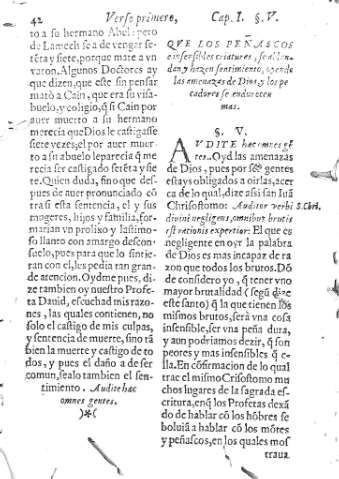 42 Verso primero, Cap. I. §. V.
to a su hermano Abel: pero
de Lamech se a de vengar se-
tẽta y siete, porque mate a vn
varon. Algunos Doctores ay
que dizen, que este sin pensar
matò a Cain, que era su visa-
buelo, y coligiò, q̃ si Cain por
auer muerto a su hermano
merecia que Dios le castigasse
siete vezes; el por auer muer-
to a su abuelo le parecia q̃ me
recia ser castigado setẽta y sie
te. Quien duda, sino que des-
pues de auer pronunciado cõ
tra si esta sentencia, el y sus
mugeres, hijos y familia, for-
marian vn prolixo y lastimo-
so llanto con amargo descon-
suelo, pues para que lo sintie-
ran con el, les pedia tan gran-
de atencion. Oydme pues, di-
ze tambien oy nuestro Profe-
ta Dauid, escuchad mis razo-
nes, las quales contienen, no
solo el castigo de mis culpas,
y sentencia de muerte, sino tã
bien la muerte y castigo de to
dos, y pues el daño a de ser
comun, sealo tambien el sen-
timiento. Audite hæc
omnes gentes.
)*(
QVE LOS PEÑASCOS
e insensibles criaturas, se ablan
dan y hazen sentimiento, oyendo
las amenazas de Dios, y los pe-
cadores se endurecen
mas.
§. V.
AVDITE hæc omnes gẽ
tes. Oyd las amenazas
de Dios, pues por ser gentes
estays obligados a oirlas, acer
ca de lo qual, dize assi san Iuã
Chrisostomo: Auditor verbi
diuini negligens, omnibus brutis
est rationis expertior: El que es
negligente en oyr la palabra
de Dios es mas incapaz de ra
zon que todos los brutos. Dõ
de considero yo, q̃ tener vno
mayor brutalidad (segũ dize
este santo) q̃ la que tienen los
mismos brutos, serà vna cosa
insensible, ser vna peña dura,
y aun podriamos dezir, q̃ son
peores y mas insensibles q̃ e-
lla. En confirmacion de lo qual
trae el mismo Crisostomo mu
chos lugares de la sagrada es-
critura, enq̃ los Profetas dexã
do de hablar cõ los hõbres se
boluiã a hablar cõ los mõtes
y peñascos, en los quales mos
traua
S. Chri.